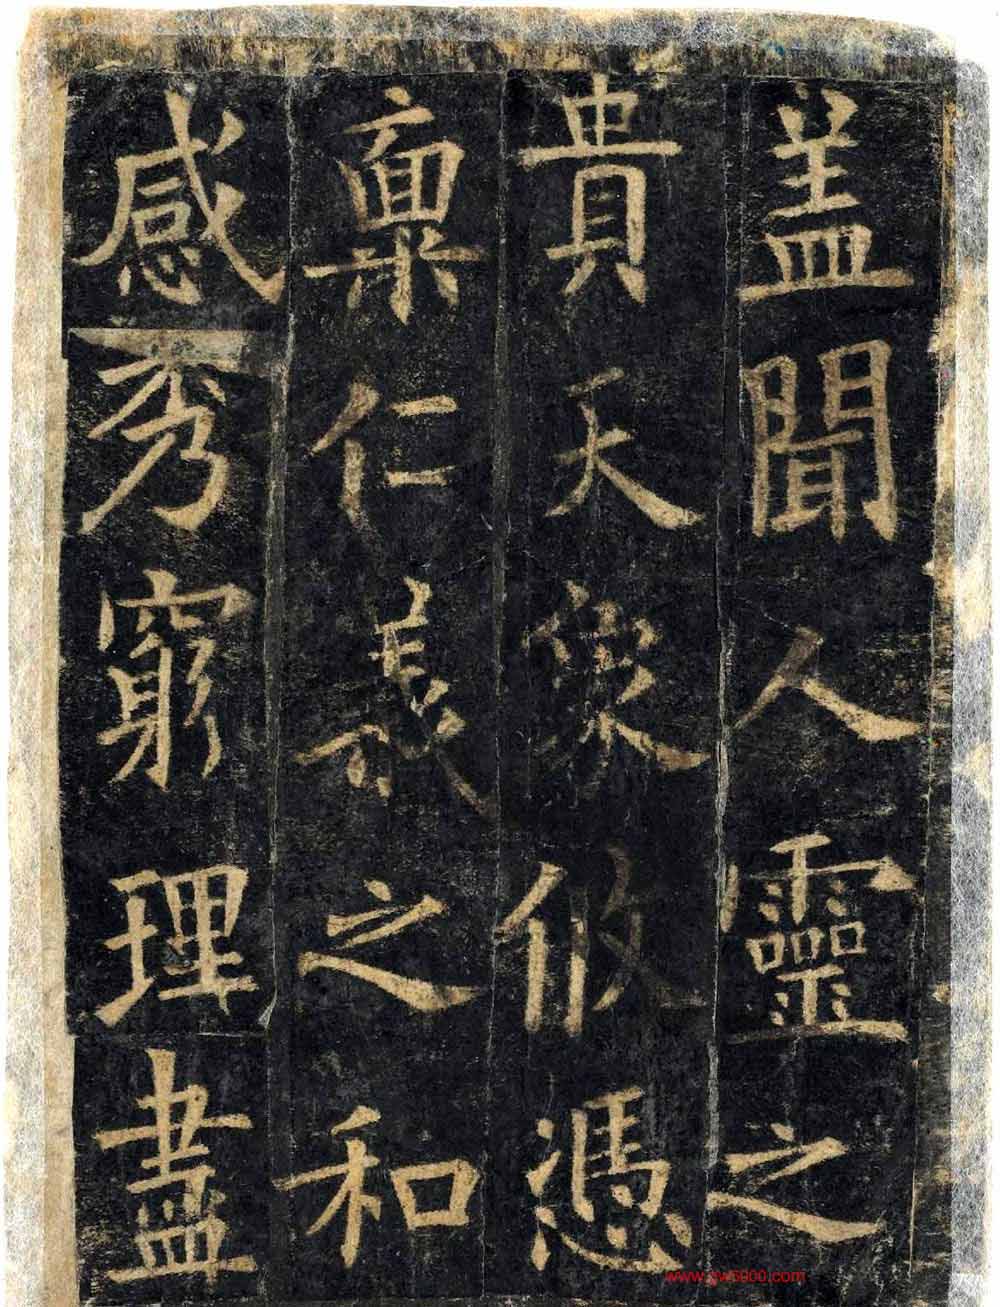 盖聞人靈之
貴天象攸憑
稟仁義之和
感秀窮理盡
www.gw5000.com